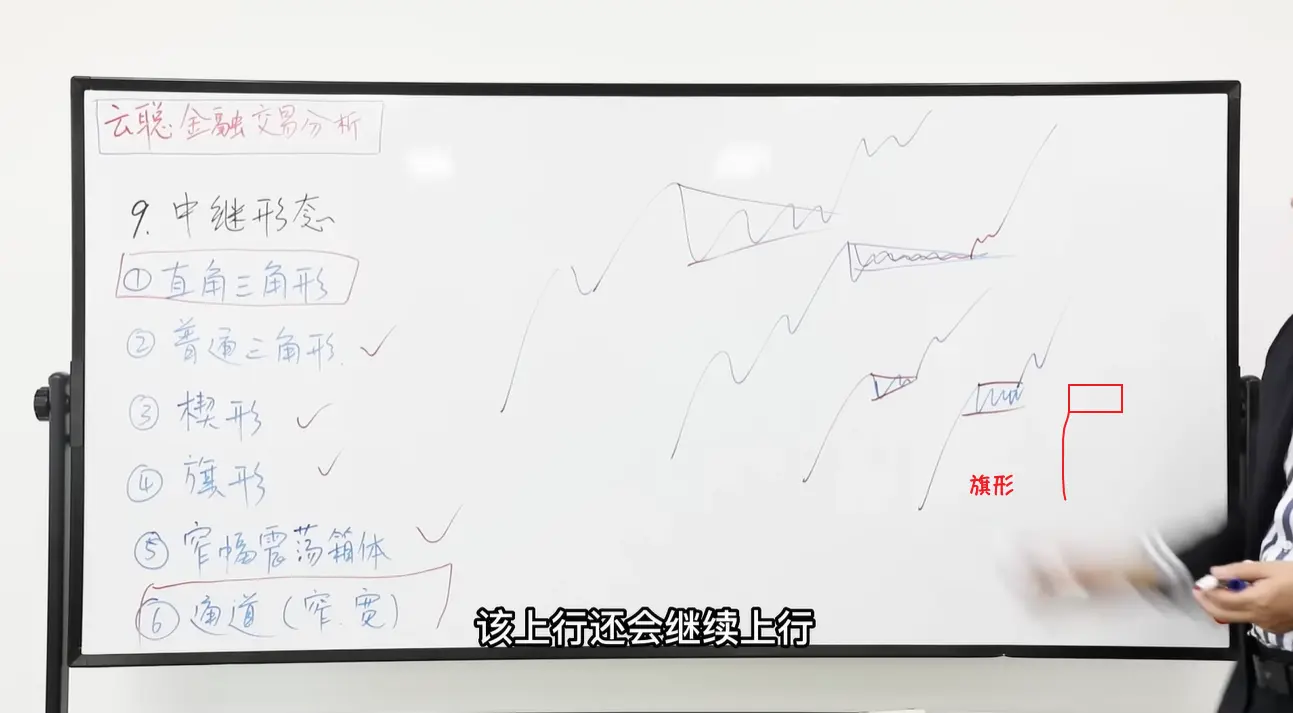 云聪金融交易分析
9. 中继形态
① 直角三角形
② 普通三角形
③ 楔形
④ 旗形
⑤ 窄幅震荡箱体
⑥ 通道(窄.宽)
旗形
该上行还会继续上行